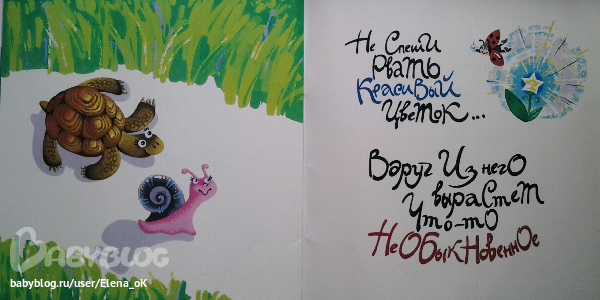 Не Спеши
Рвать
Красивый
Цветок...
Вдруг Из него
вырастет
Что-то
НеОбыкНовенное
BABYBLOG
babyblog.ru/user/Elena_oK